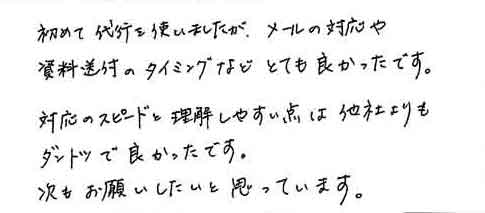 初めて代行を使いましたが、メールの対応や
資料送付のタイミングなどとても良かったです。
対応のスピードと理解しやすい点は他社よりも
ダントツで良かったです。
次もお願いしたいと思っています。